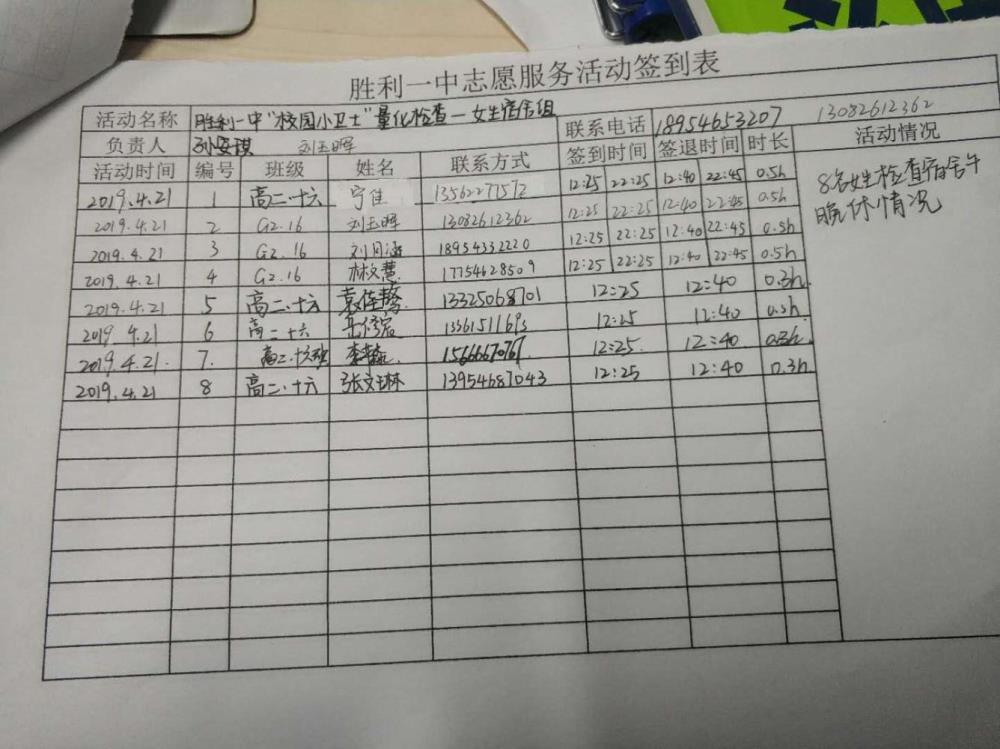 胜利一中志愿服务活动签到表
活动名称 胜利一中“校园小卫士”量化检查—女生宿舍组 联系电话 18954653207 13082612362
负责人 刘玉晖 签到时间 签退时间 时长 活动情况
活动时间 编号 班级 姓名 联系方式
2019.4.21 1 高二·十六 宁佳 13562277572 12:25 22:25 12:40 22:45 0.5h 8名女生检查宿舍午
2019.4.21 2 G2.16 刘玉晖 13082612362 12:25 22:25 12:40 22:45 0.5h 晚休情况
2019.4.21 3 G2.16 刘月涵 18954332220 12:25 22:25 12:40 22:45 0.5h
2019.4.21 4 G2.16 林文慧 17754628509 12:25 22:25 12:40 22:45 0.5h
2019.4.21 5 高二·十六 13325068701 12:25 12:40 0.3h
2019.4.21 6 高二·十六 12:25 12:40 0.3h
2019.4.21. 7. 高二·十六班 12:25. 12:40 0.3h.
2019.4.21 8 高二·十六 张文琳 13954687043 12:25 12:40 0.3h